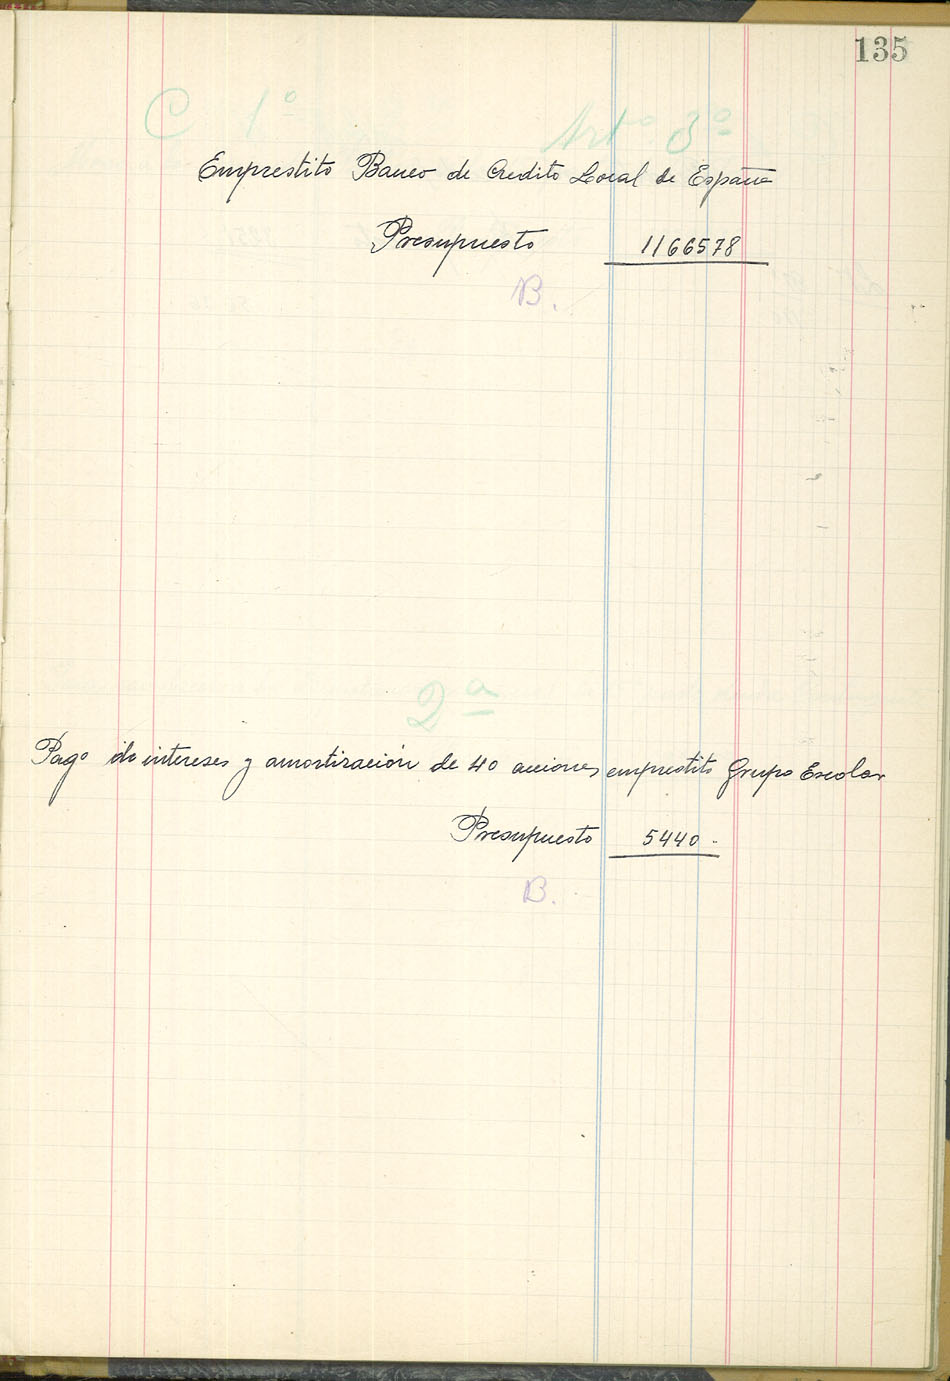 135
C 1º Artº 3º
Emprestito Banco de Credito Local de España
Presupuesto 1166578
B.
2ª
Pago de intereses y amortización de 40 acciones emprestito Grupo Escolar
Presupuesto 5440.-
B.